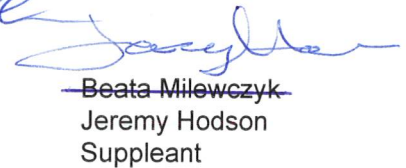 Beata Milewczyk
Jeremy Hodson
Suppleant